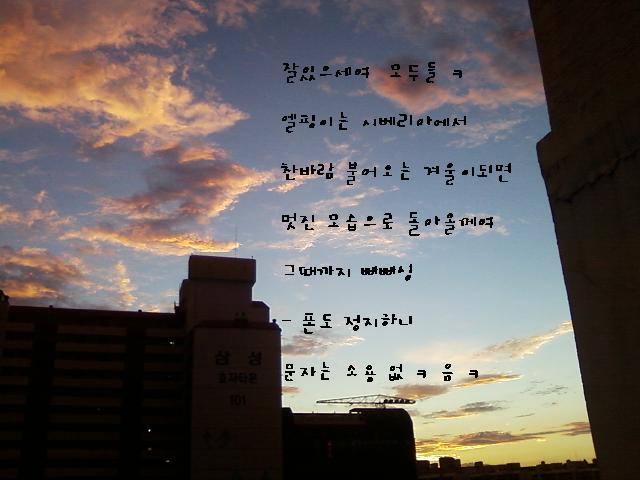 잘있으세여 모두들 ㅋ
엘핑이는 시베리아에서
찬바람 불어오는 겨울이되면
멋진 모습으로 돌아올께여
그때까지 빠빠싱
- 폰도 정지하니
문자는 소용 없 ㅋ 음 ㅋ
삼성
효자타운
101